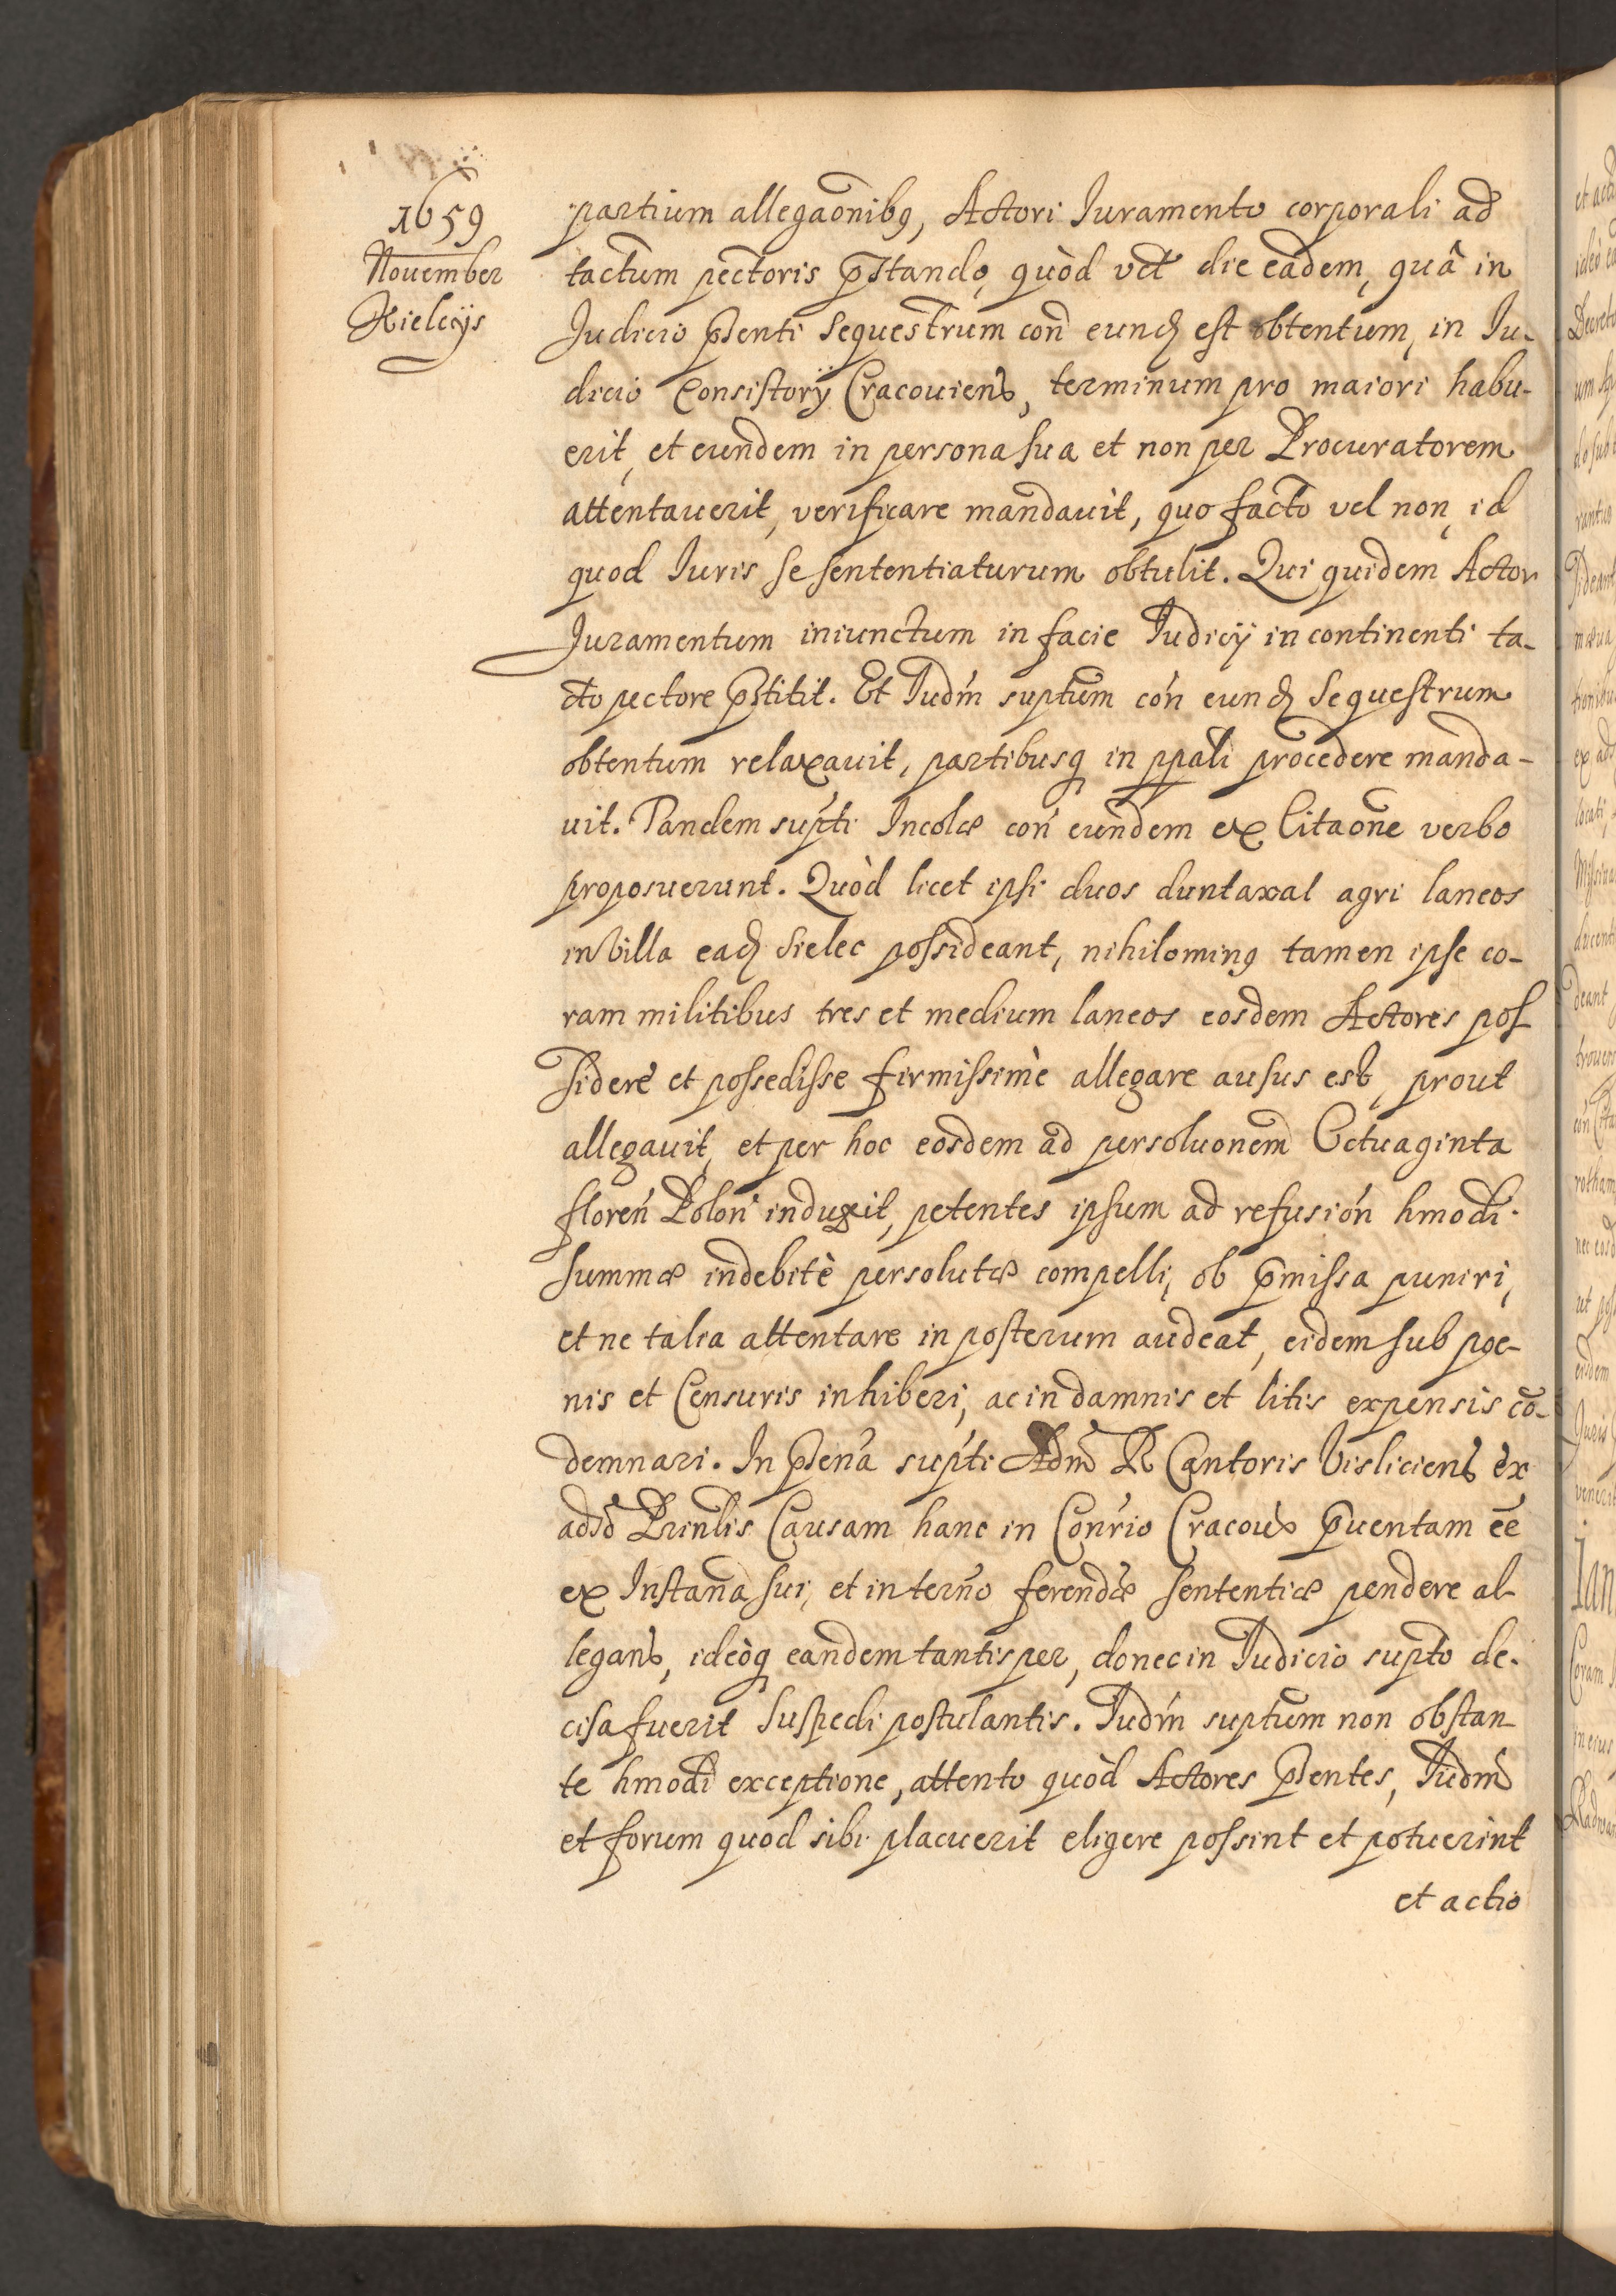 1659
Nouember
Kielcijs
partium allegaõnibq, Actori Iuramento corporali ad
tactum pectoris p̃standq, quòd vct die eadem, quâ in
Judicio p̃senti Sequestrum con̄ eund est obtentum, in Iu-
dicio Consistorÿ Cracouiens, terminum pro maiori habu-
erit, et eundem in persona sua et non per Procuratorem
attentauerit, verificare mandauit, quo facto vel non, id
quod Iuris se sententiaturum obtulit. Qui quidem Actor
Juramentum iniunctum in facie Iudicÿ in continenti ta-
cto pectore p̃stitit. Et Iudm̄ suptum cón eund Sequestrum
obtentum relaxauit, partibusq in ppali procedere manda-
uit. Tandem supti Incolæ cón eundem ex Citaone verbo
proposuerunt. Quòd licet ipsi duos duntaxat agri laneos
in Villa ead Sielec possideant, nihilominq tamen ipse co-
ram militibus tres et medium laneos eosdem Actores pos-
sidere et possedisse firmissimè allegare ausus est, prout
allegauit, et per hoc eosdem ad persoluonem Octuaginta
floren̄ Polon̄ induxit, petentes ipsum ad refusión hmodi
summæ indebitè persolutæ compelli, ob p̃missa puniri,
et ne talia attentare in posterum audeat, eidem sub poe-
nis et Censuris inhiberi, ac in damnis et litis expensis cō-
demnari. In p̃sen̄a supti Adm̄ R Cantoris Visliciens ex
adso Prinlis Causam hanc in Conrio Cracou p̃uentam eē
ex Instan̄a sui, et in termo ferendæ sententiæ pendere al-
legans, ideòq eandem tantisper, donec in Iudicio supto de-
cisa fuerit suspedi postulantis. Iudm̄ suptum non obstan-
te hmodi exceptione, attento quòd Actores p̃sentes, Iudm̄
et forum quod sibi placuerit eligere possint et potuerint
et actio